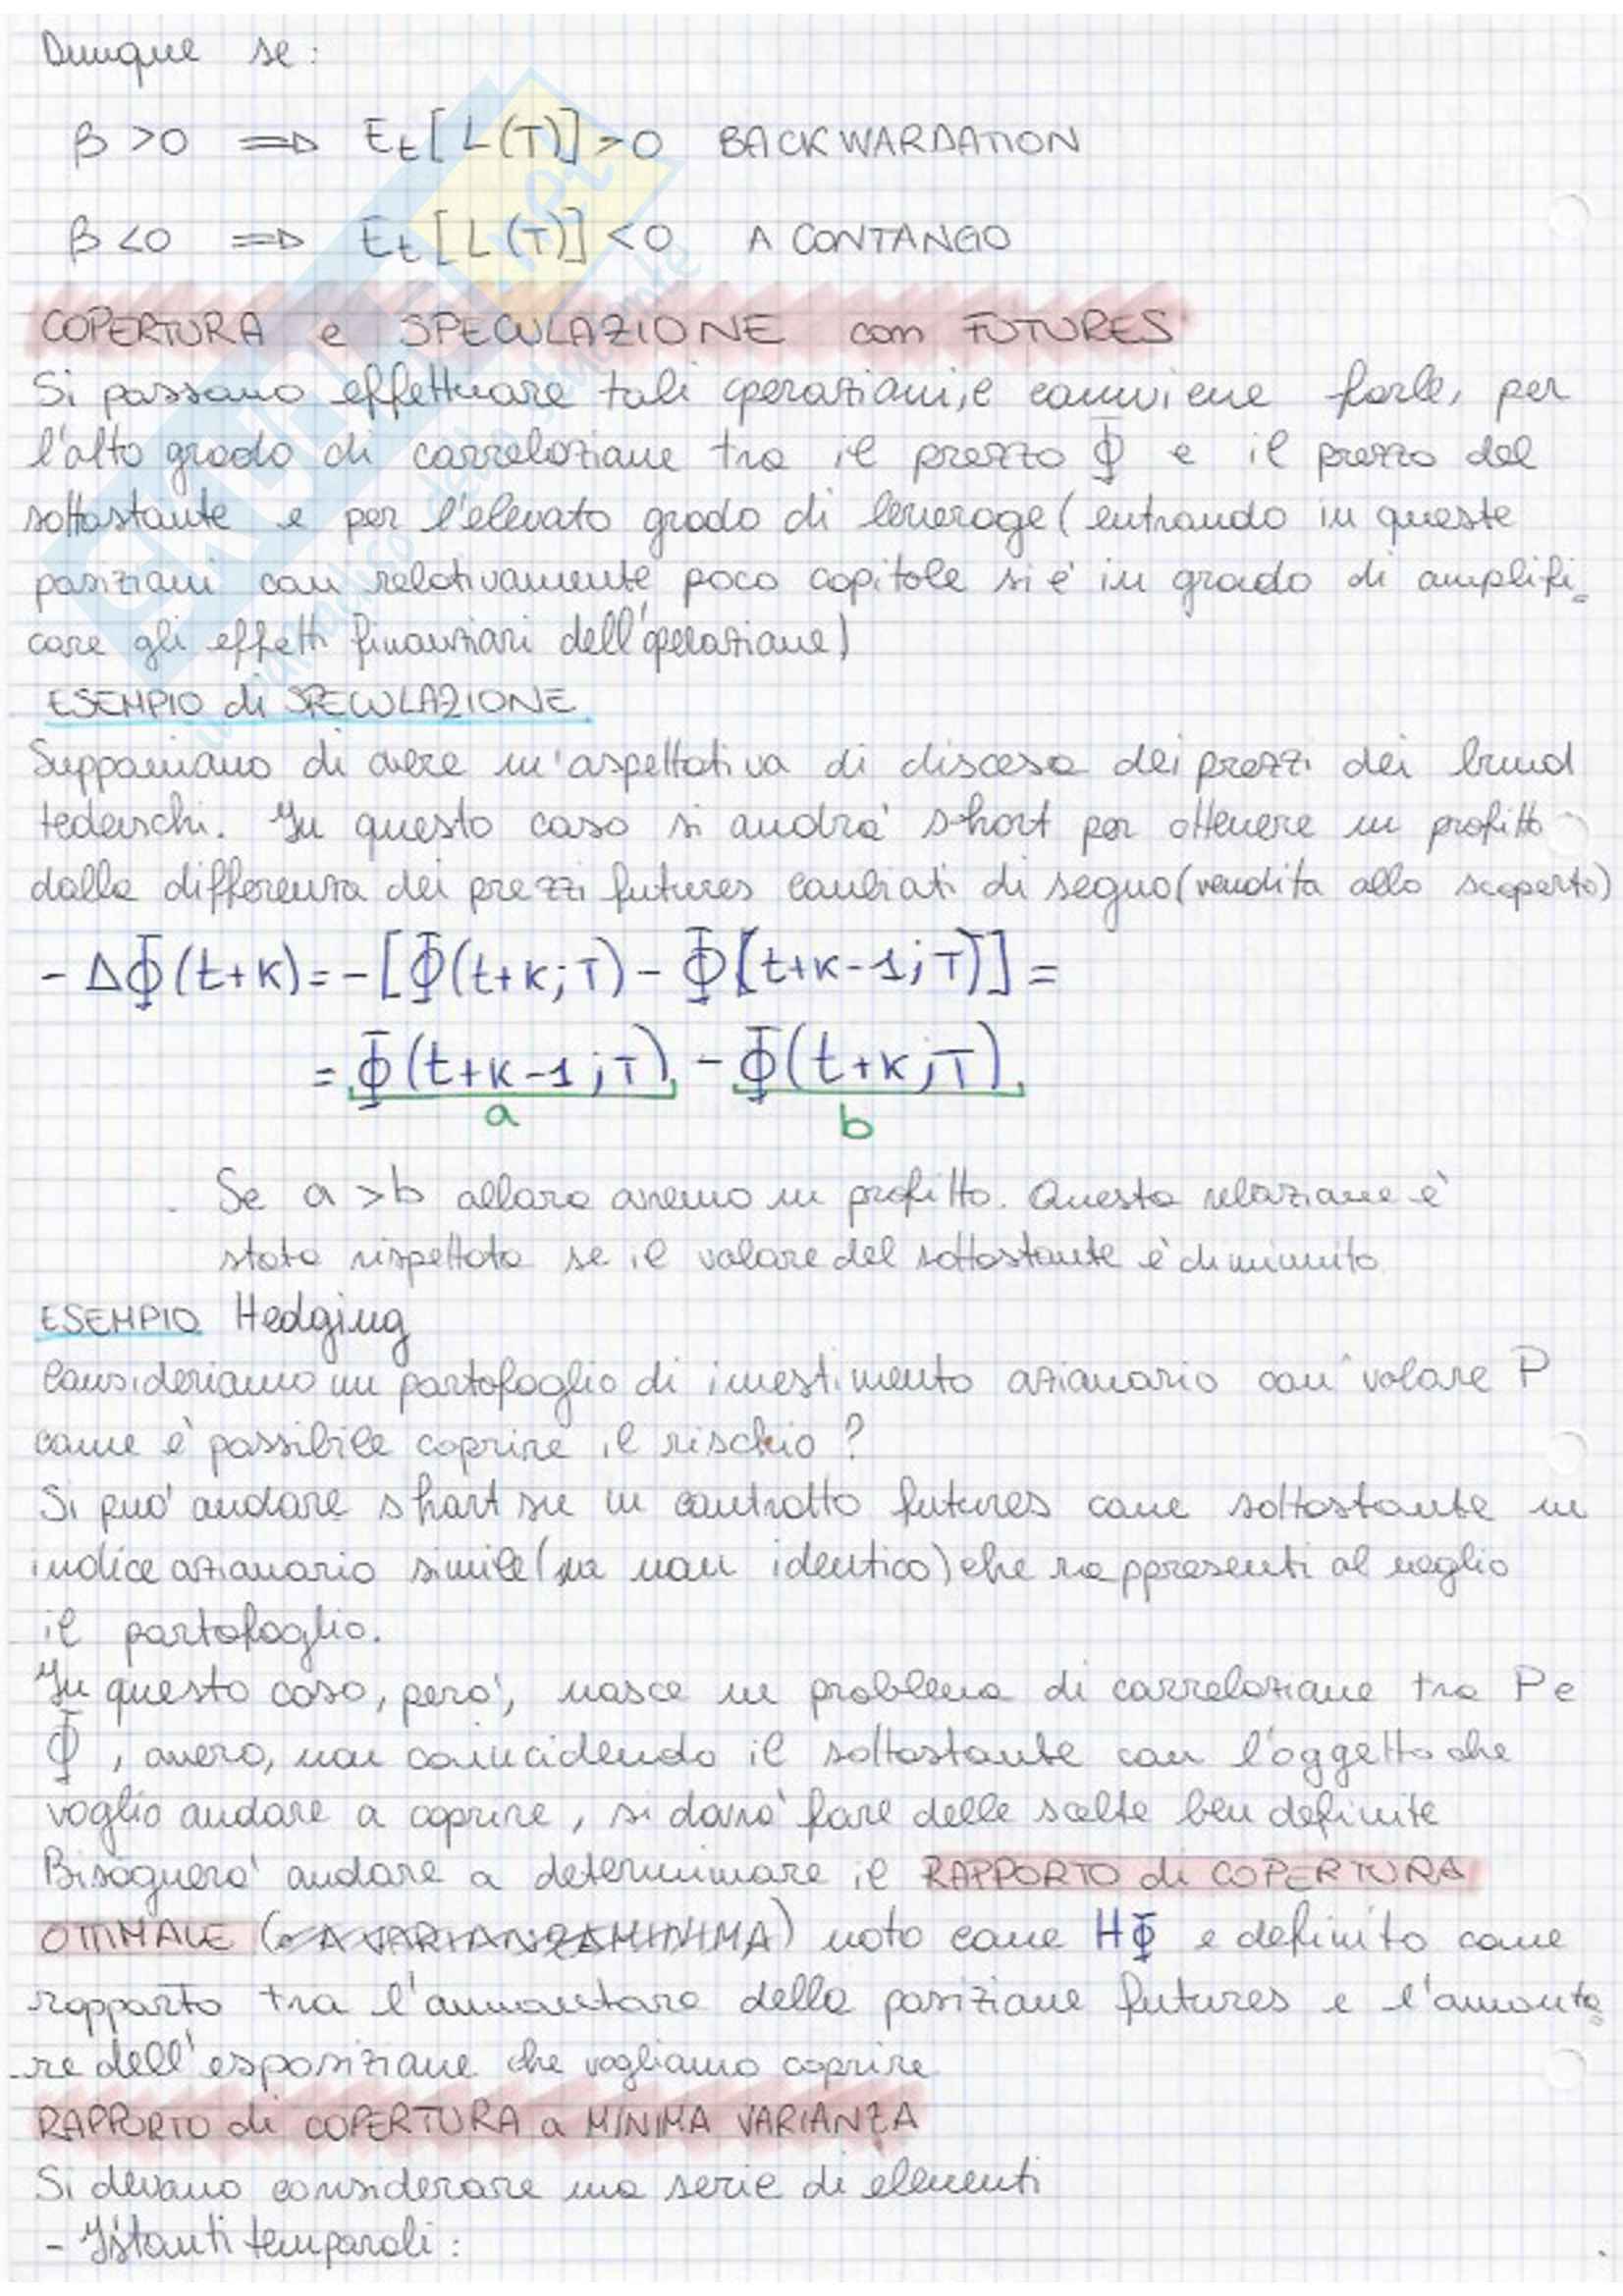 Dunque se:
β >0 ⟹ Et[L(T)]>0 BACKWARDATION
β <0 ⟹ Et[L(T)] <0 A CONTANGO
COPERTURA e SPECULAZIONE con FUTURES
Si possono effettuare tali operazioni, e conviene farle, per
l'alto grado di correlazione tra il prezzo Φ e il prezzo del
sottostante e per l'elevato grado di leverage (entrando in queste
posizioni con relativamente poco capitale si è in grado di amplifi
care gli effetti finanziari dell'operazione)
ESEMPIO di SPECULAZIONE
Supponiamo di avere un'aspettativa di discesa dei prezzi dei bund
tedeschi. In questo caso si andrà short per ottenere un profitto
dalla differenza dei prezzi futures cambiati di segno (vendita allo scoperto)
- ΔΦ(t+k)=-[Φ(t+k;T)- Φ[t+k-1;T)]=
= Φ(t+k-1;T) - Φ(t+k;T)
a b
Se a >b allora avremo un profitto. Questa relazione è
stata rispettata se il valore del sottostante è diminuito
ESEMPIO Hedging
Consideriamo un portafoglio di investimento azionario con valore P
come è possibile coprire il rischio?
Si può andare short su un contratto futures come sottostante un
indice azionario simile (ma non identico) che rappresenti al meglio
il portafoglio.
In questo caso, però, nasce un problema di correlazione tra P e
Φ, ovvero, non coincidendo il sottostante con l'oggetto che
voglio andare a coprire, si dovrà fare delle scelte ben definite
Bisognerà andare a determinare il RAPPORTO di COPERTURA
OTTIMALE (o A VARIANZA MINIMA) noto come HΦ e definito come
rapporto tra l'ammontare della posizione futures e l'amonta
re dell'esposizione che vogliamo coprire
RAPPORTO di COPERTURA a MINIMA VARIANZA
Si devono considerare una serie di elementi
- Istanti temporali: